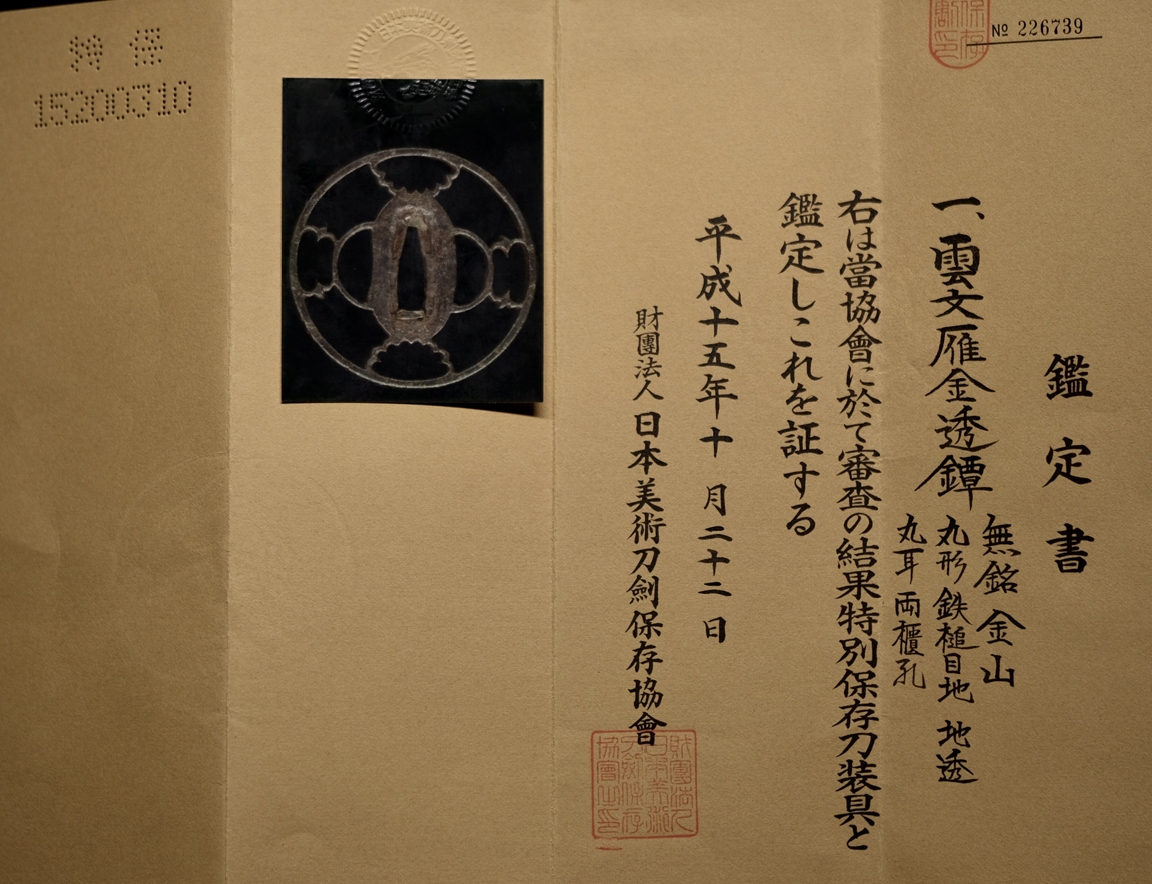 № 226739
鑑定書
一、雲文雁金透鐔
無銘 金山
丸形 鉄槌目地 地透
丸耳 両櫃孔
右は當協會に於て審査の結果特別保存刀装具と
鑑定しこれを証する
平成十五年十月二十二日
財團法人日本美術刀劍保存協會
財團法人
日本美術
刀劍保存
協會之印
特保
15200310